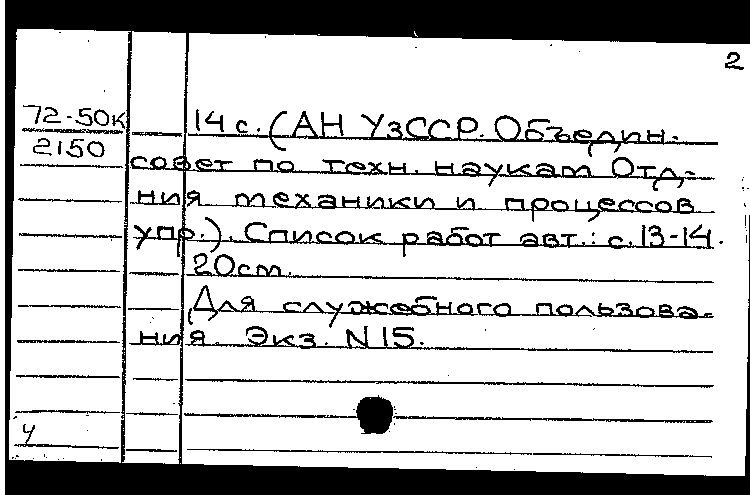 2
72-50к
2150
14 с. (АН УзССР. Объедин.
совет по техн. наукам Отд-
ния механики и процессов
упр.). Список работ авт.: с. 13-14.
20 см.
Для служебного пользова-
ния. Экз. N 15.
ч